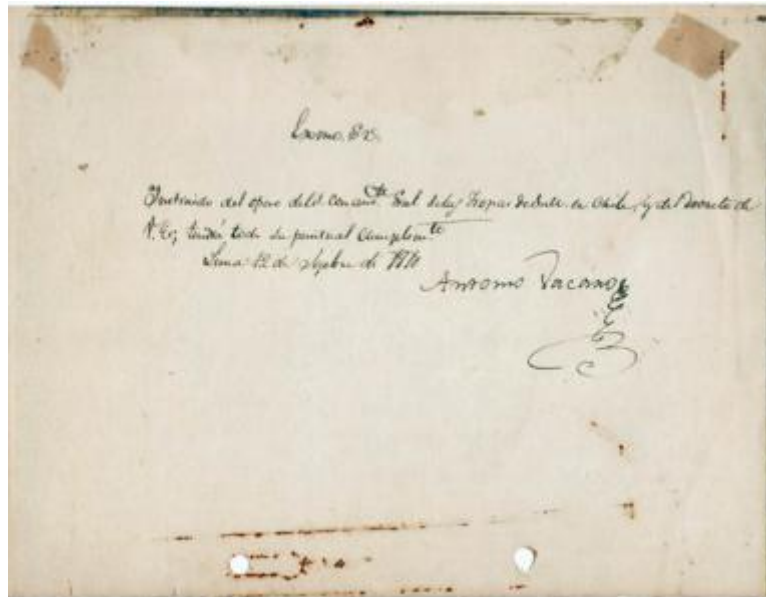 Exmo. Sor.
Instruido del oficio del Comandte Gral de las Tropas de en Chile, y del Decreto de
V. E., tendrá todo su puntual cumplimto
Lima 12 de de
Antonio Vacaro